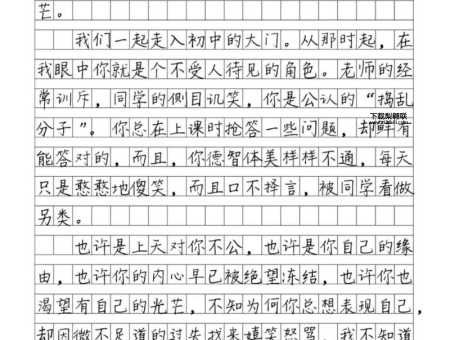 芒。
我们一起走入初中的大门。从那时起，在
我眼中你就是个不受人待见的角色。老师的经
常训斥，同学的侧目讥笑，你是公认的“捣乱
分子”。你总在上课时抢答一些问题，却鲜有
能答对的，而且，你德智体美样样不通，每天
只是憨憨地傻笑，而且口不择言，被同学看做
另类。
也许是上天对你不公，也许是你自己的缘
由，也许你的内心早已被绝望冻结，也许你也
渴望有自己的光芒，不知为何你总想表现自己，
却因微不足道的过失找来嬉笑怒骂。我不知道